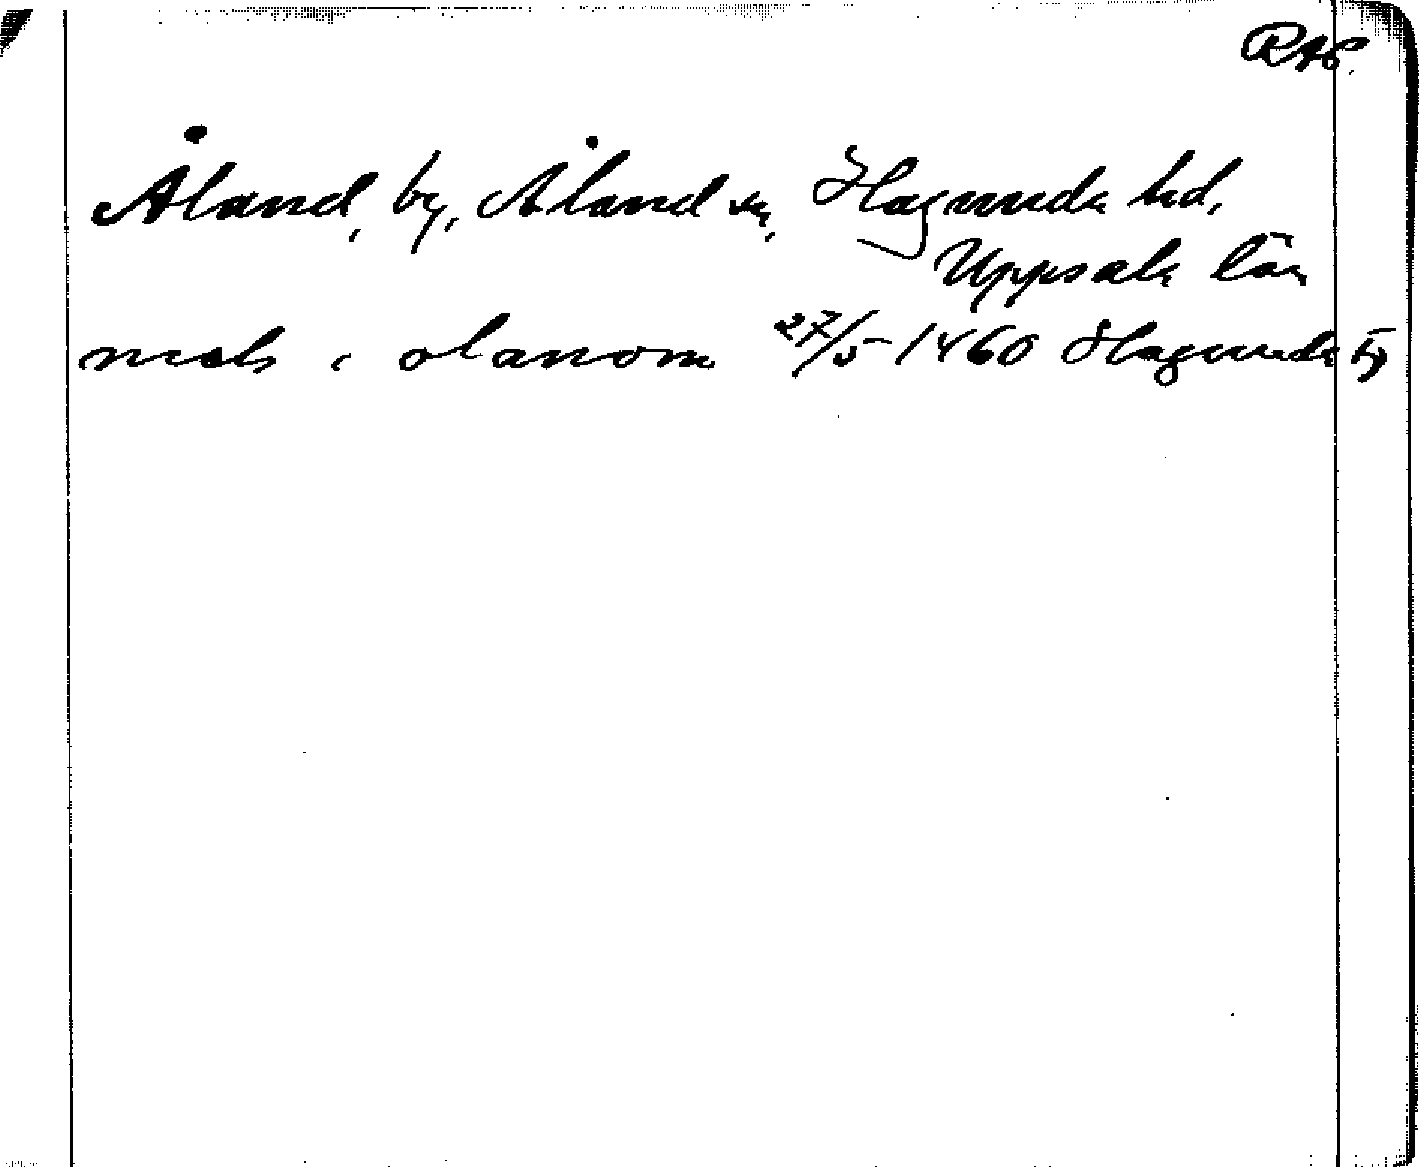 RAp.
Åland, by, Åland sn, Hagunda hd,
Uppsala län
nicols i olanom 27/5 1460 Hagunda